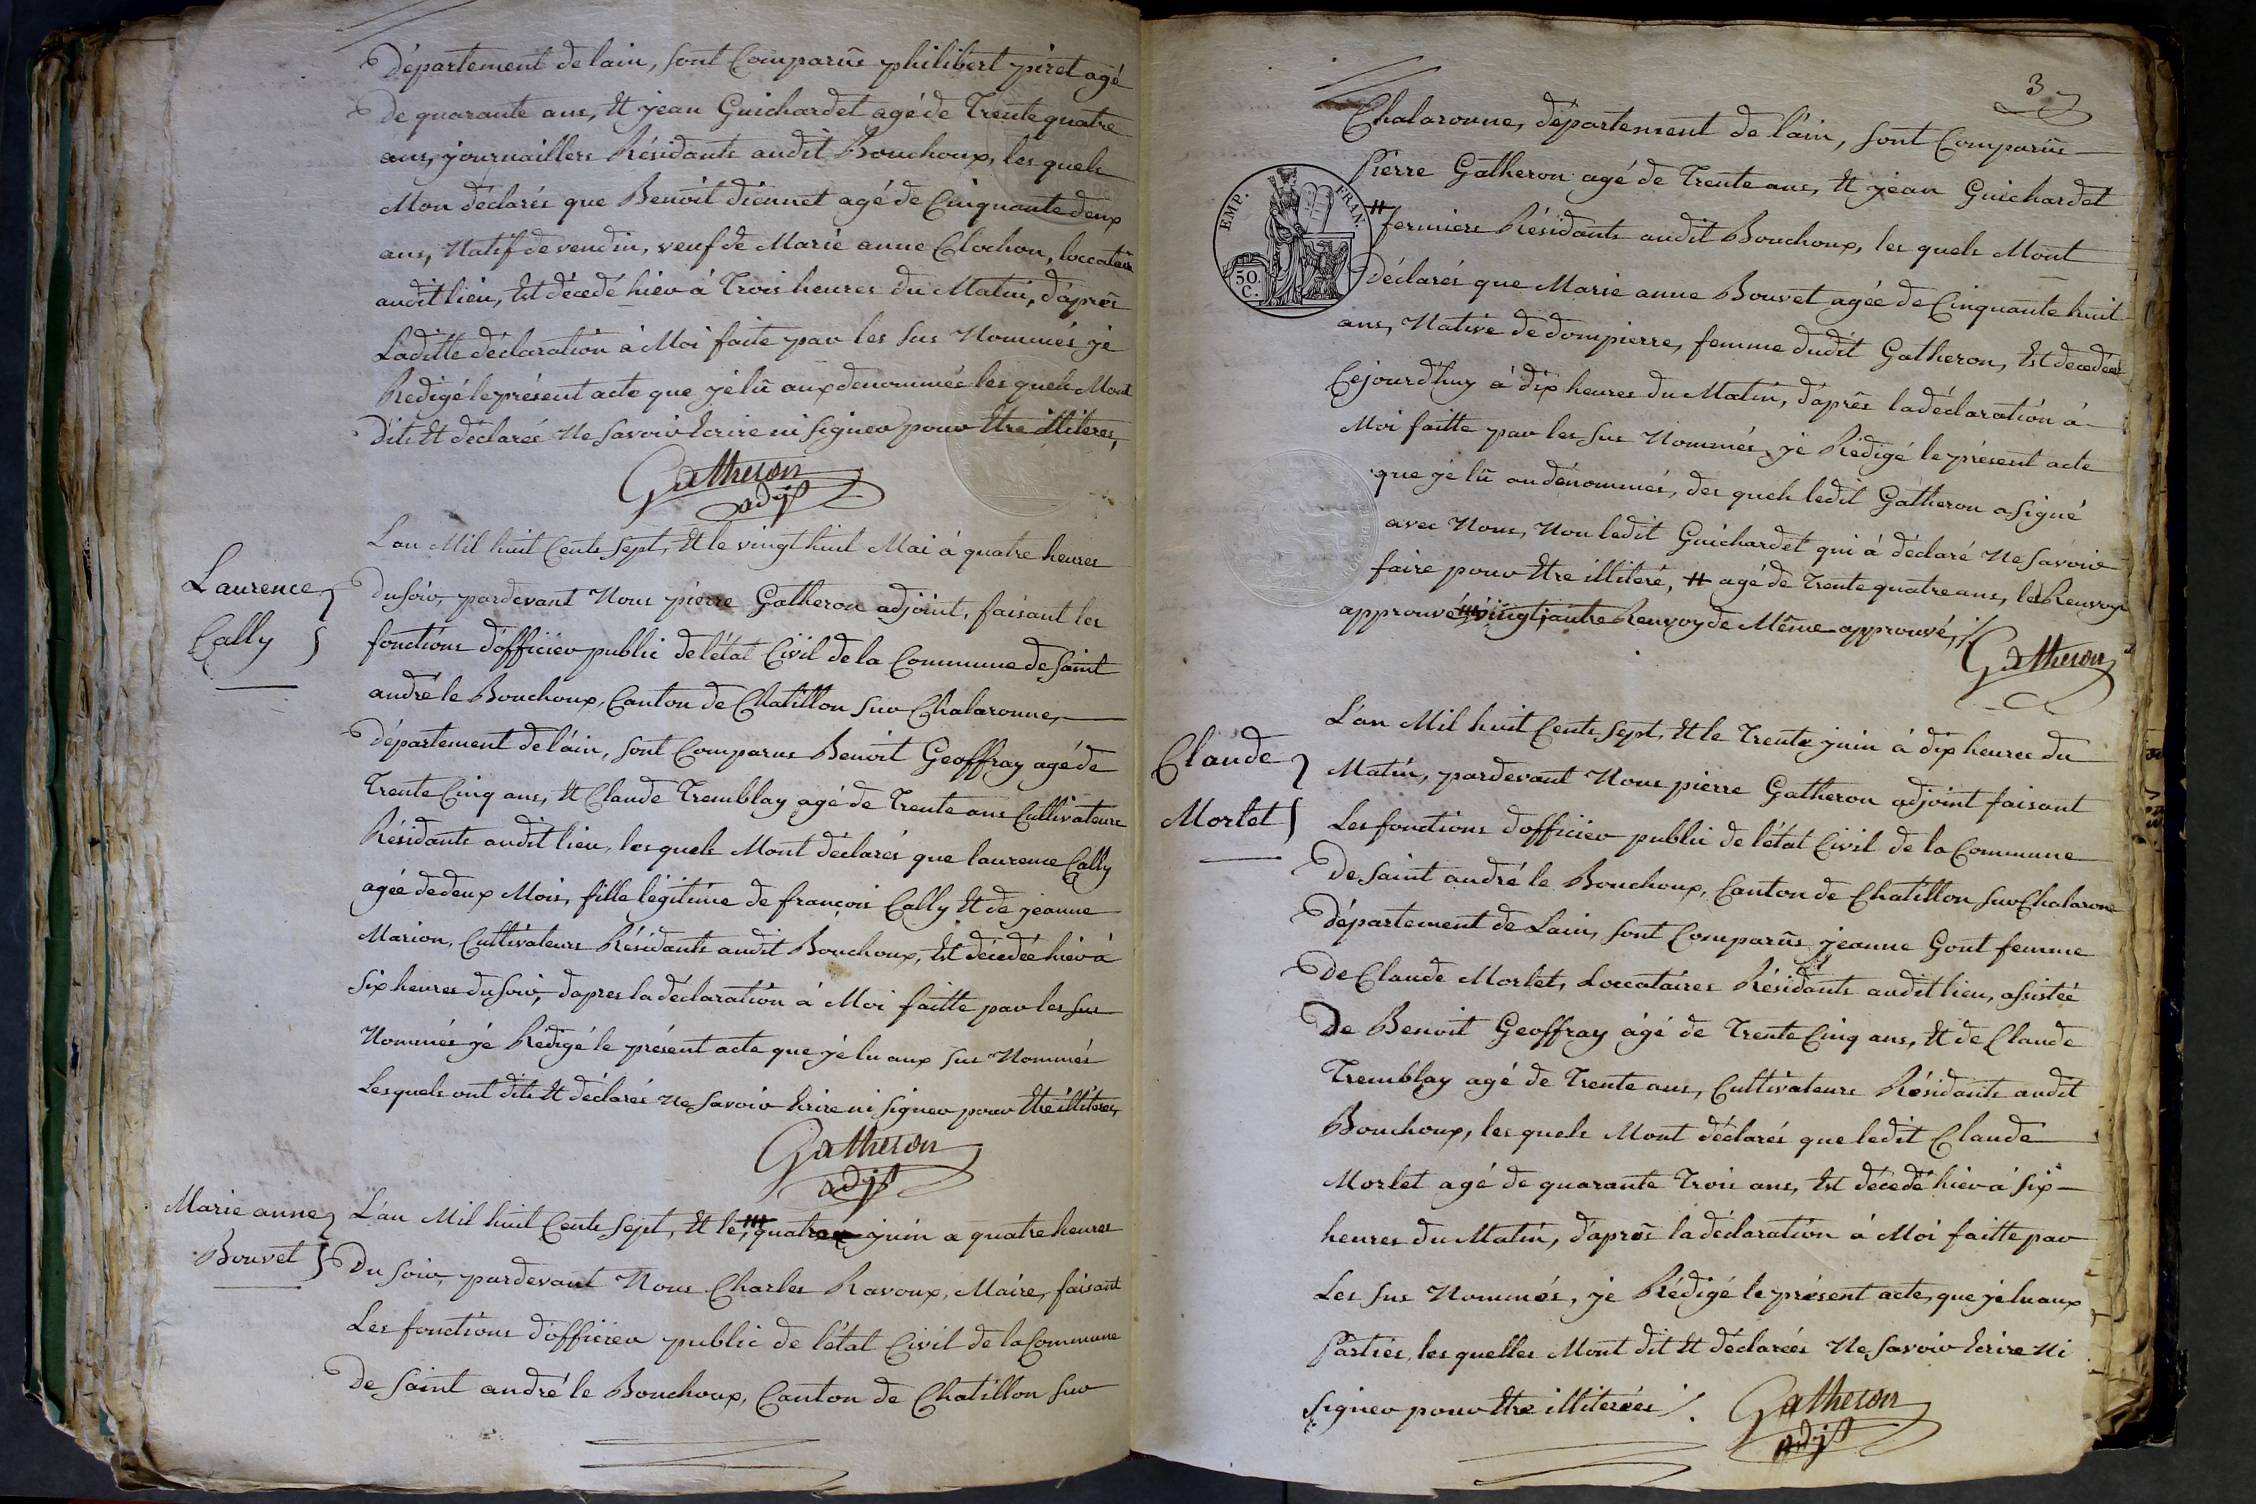 Département de lain, sont Comparûs philibert piret agé
De quarante ans, Et jean Guichardet agé de Trente quatre
ans, journailliers Résidants audit Bouchoux, les quels
Mon déclarés que Benoit diennet agé de Cinquante deux
ans, Natif de vendin, veuf de Marie anne Clochon, loccataire
audit lieu, Est décedé hier à Trois heures du Matin, d'après
Laditte déclaration à Moi faite par les sus Nommés jé
Redigé le présent acte que jé lû aux denommés les quels Mont
Dits Et déclarés Ne savoir Ecrire ni signer pour Etre illiteres,
Gatheron
adjt
Laurence
Cally
L'an Mil huit Cents sept, Et le vingt huit Mai à quatre heures
Du soir, pardevant Nous pierre Gatheron adjoint, faisant les
fonctions d'officier public de l'état Civil de la Commune de saint
andré le Bouchoux, Canton de Chatillon sur Chalaronne,
Département de l'ain, sont Comparus Benoit Geoffray agé de
Trente Cinq ans, Et Claude Tremblay agé de Trente ans Cultivateurs
Résidants audit lieu, les quels Mont déclarés que laurence Cally
agée de deux Mois, fille légitime de françois Cally Et de jeanne
Marion, Cultivateurs Résidants audit Bouchoux, Est décedée hier à
Six heures du soir, d'apres la déclaration à Moi faitte par les sus
Nommés jé Rédigé le présent acte que jé lu aux sus Nommés
Lesquels ont dits Et déclarés Ne savoir Ecrire ni signer pour Etre illiteres,
Gatheron
adjt
Marie anne
Bouvet
L'an Mil huit Cents sept, Et le quatre juin a quatre heures
Du soir, pardevant Nous Charles Ravoux, Maire, faisant
Les fonctions d'officier public de l'état Civil de la Commune
De saint andré le Bouchoux, Canton de Chatillon sur
3
Chalaronne, département de l'ain, sont Comparûs
EMP. FRAN.
50 C.
Pierre Gatheron agé de Trente ans, Et jean Guichardet
# fermiers Résidants audit Bouchoux, les quels Mont
Déclarés que Marie anne Bouvet agée de Cinquante huit
ans, Native de dompierre, femme dudit Gatheron, Est decedée
Cejourd'huy à dix heures du Matin, d'après la déclaration à
Moi faitte par les sus Nommés, jé Rédigé le présent acte
que jé lû au dénommés, des quels ledit Gatheron a signé
avec Nous, Non ledit Guichardet qui à déclaré Ne savoir
faire pour Etre illiteré, # agé de Trente quatre ans, le Renvoy
approuvé, vingt, autre Renvoy de Même approuvé,
Gatheron
Claude
Morlet
L'an Mil huit Cents sept, Et le Trente juin à dix heures du
Matin, pardevant Nous pierre Gatheron adjoint faisant
Les fonctions d'officier public de l'état Civil de la Commune
De saint andré le Bouchoux, Canton de Chatillon sur Chalarone
Département de Lain, sont Comparûs jeanne Gont femme
De Claude Morlet, Loccataires Résidants audit lieu, assistée
De Benoit Geoffray agé de Trente Cinq ans, Et de Claude
Tremblay agé de Trente ans, Cultivateurs Résidants audit
Bouchoux, les quels Mont déclarés que ledit Claude
Morlet agé de quarante Trois ans, Est décedé hier à six
heures du Matin, d'après la déclaration à Moi faitte par
Les sus Nommés, jé Rédigé le présent acte, que jé lu aux
Parties, les quelles Mont dit Et déclarées Ne savoir Ecrire Ni
Signer pour Etre illiterées
Gatheron
adjt